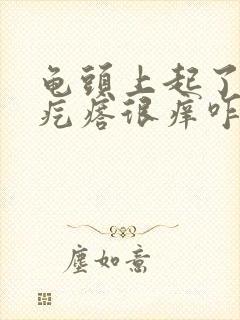 龟頭上起了
疙瘩很痒咋
塵如意